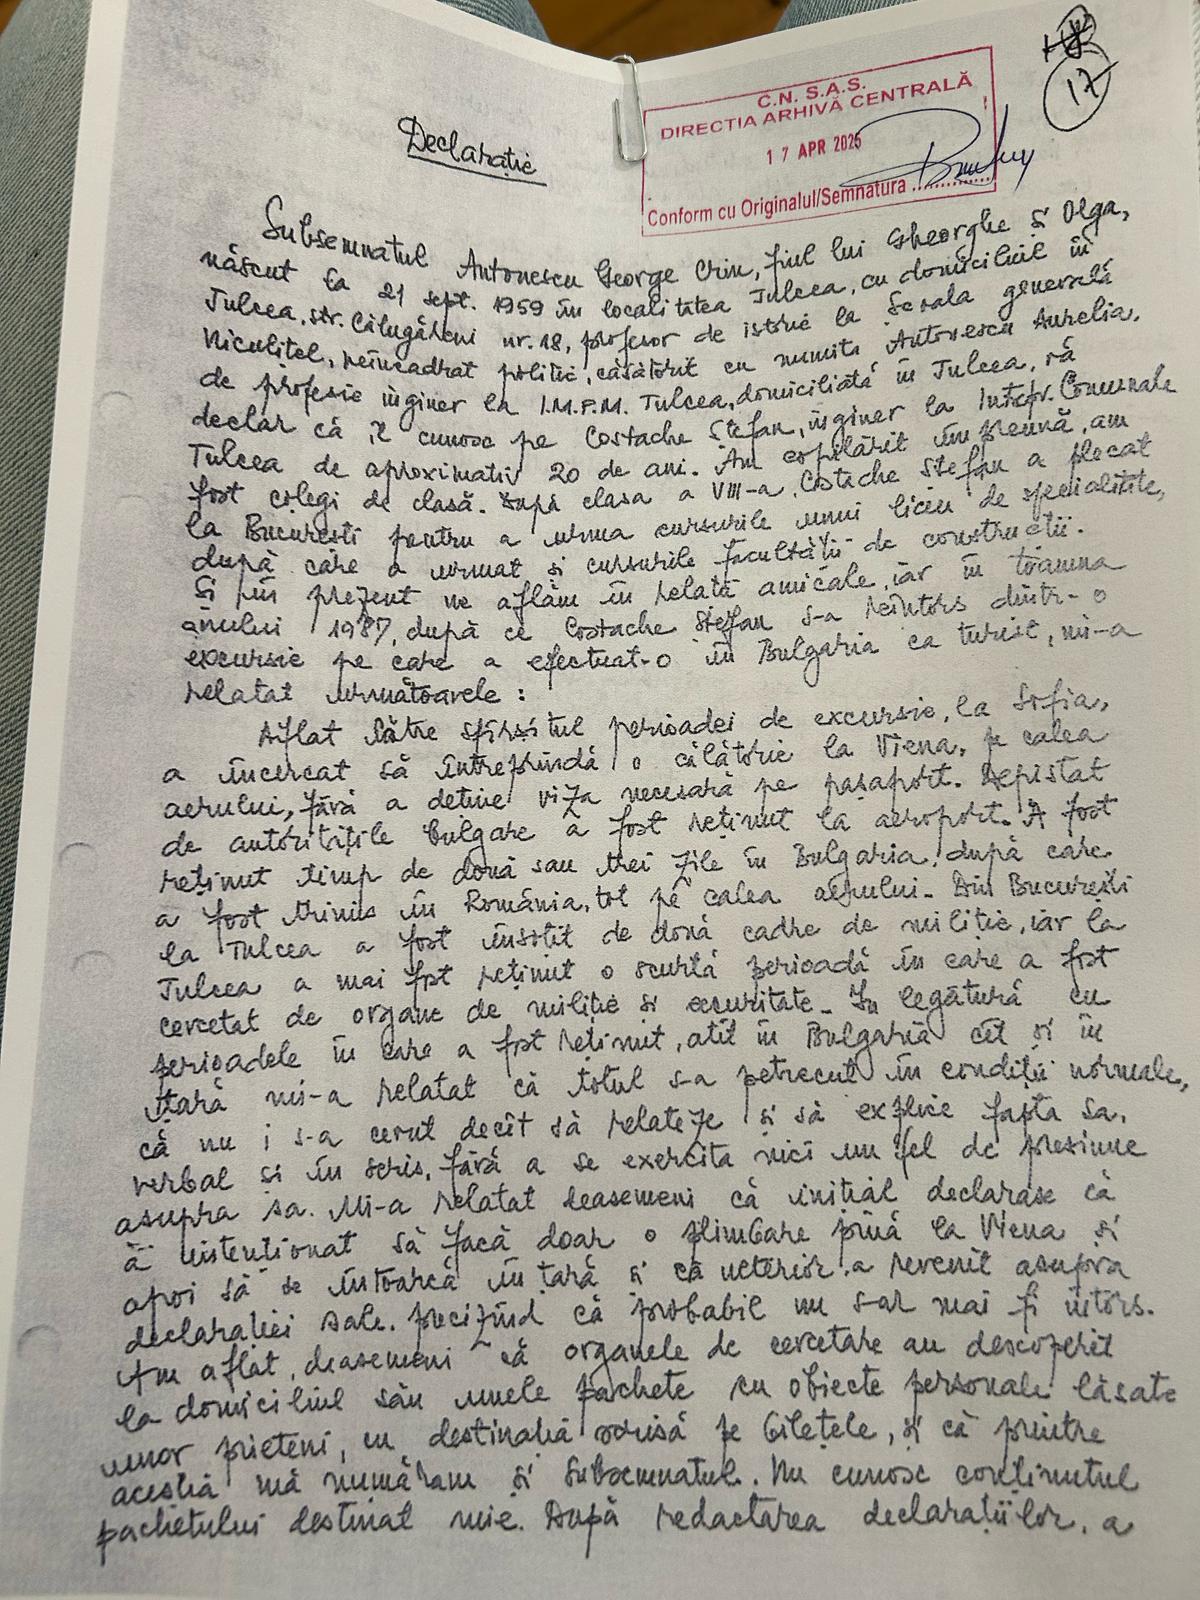 17
C.N. S.A.S.
DIRECTIA ARHIVĂ CENTRALĂ
17 APR 2025
Conform cu Originalul/Semnatura ..............
Declarație
Subsemnatul Antonescu George Crin, fiul lui Gheorghe și Olga,
născut la 21 sept. 1959 în localitatea Tulcea, cu domiciliul în
Tulcea, str. Călugăreni nr. 18, profesor de istorie la Școala generală
Niculițel, neîncadrat politic, căsătorit cu numita Antonescu Aurelia,
de profesie inginer la I.M.P.M. Tulcea, domiciliată în Tulcea, vă
declar că îl cunosc pe Costache Ștefan, inginer la Intrepr. Comunale
Tulcea de aproximativ 20 de ani. Am copilărit împreună, am
fost colegi de clasă. După clasa a VIII-a, Costache Ștefan a plecat
la București pentru a urma cursurile unui liceu de specialitate,
după care a urmat și cursurile facultății de construcții.
Și în prezent ne aflăm în relații amicale, iar în toamna
anului 1987, după ce Costache Ștefan s-a reîntors dintr-o
excursie pe care a efectuat-o în Bulgaria ca turist, mi-a
relatat următoarele :
Aflat către sfîrșitul perioadei de excursie, la Sofia,
a încercat să întreprindă o călătorie la Viena, pe calea
aerului, fără a deține viza necesară pe pașaport. Depistat
de autoritățile bulgare a fost reținut la aeroport. A fost
reținut timp de două sau trei zile în Bulgaria, după care
a fost trimis în România, tot pe calea aerului. Din București
la Tulcea a fost însoțit de două cadre de miliție, iar la
Tulcea a mai fost reținut o scurtă perioadă în care a fost
cercetat de organe de miliție și securitate. În legătură cu
perioadele în care a fost reținut, atît în Bulgaria cît și în
țară mi-a relatat că totul s-a petrecut în condiții normale,
că nu i s-a cerut decît să relateze și să explice fapta sa,
verbal și în scris, fără a se exercita nici un fel de presiune
asupra sa. Mi-a relatat deasemeni că inițial declarase că
a intenționat să facă doar o plimbare pînă la Viena și
apoi să se întoarcă în țară și că ulterior a revenit asupra
declarației sale, precizînd că probabil nu s-ar mai fi întors.
Am aflat, deasemeni că organele de cercetare au descoperit
la domiciliul său unele pachete cu obiecte personale lăsate
unor prieteni, cu destinația scrisă pe bilețele, și că printre
aceștia mă număram și subsemnatul. Nu cunosc conținutul
pachetului destinat mie. După redactarea declarațiilor, a